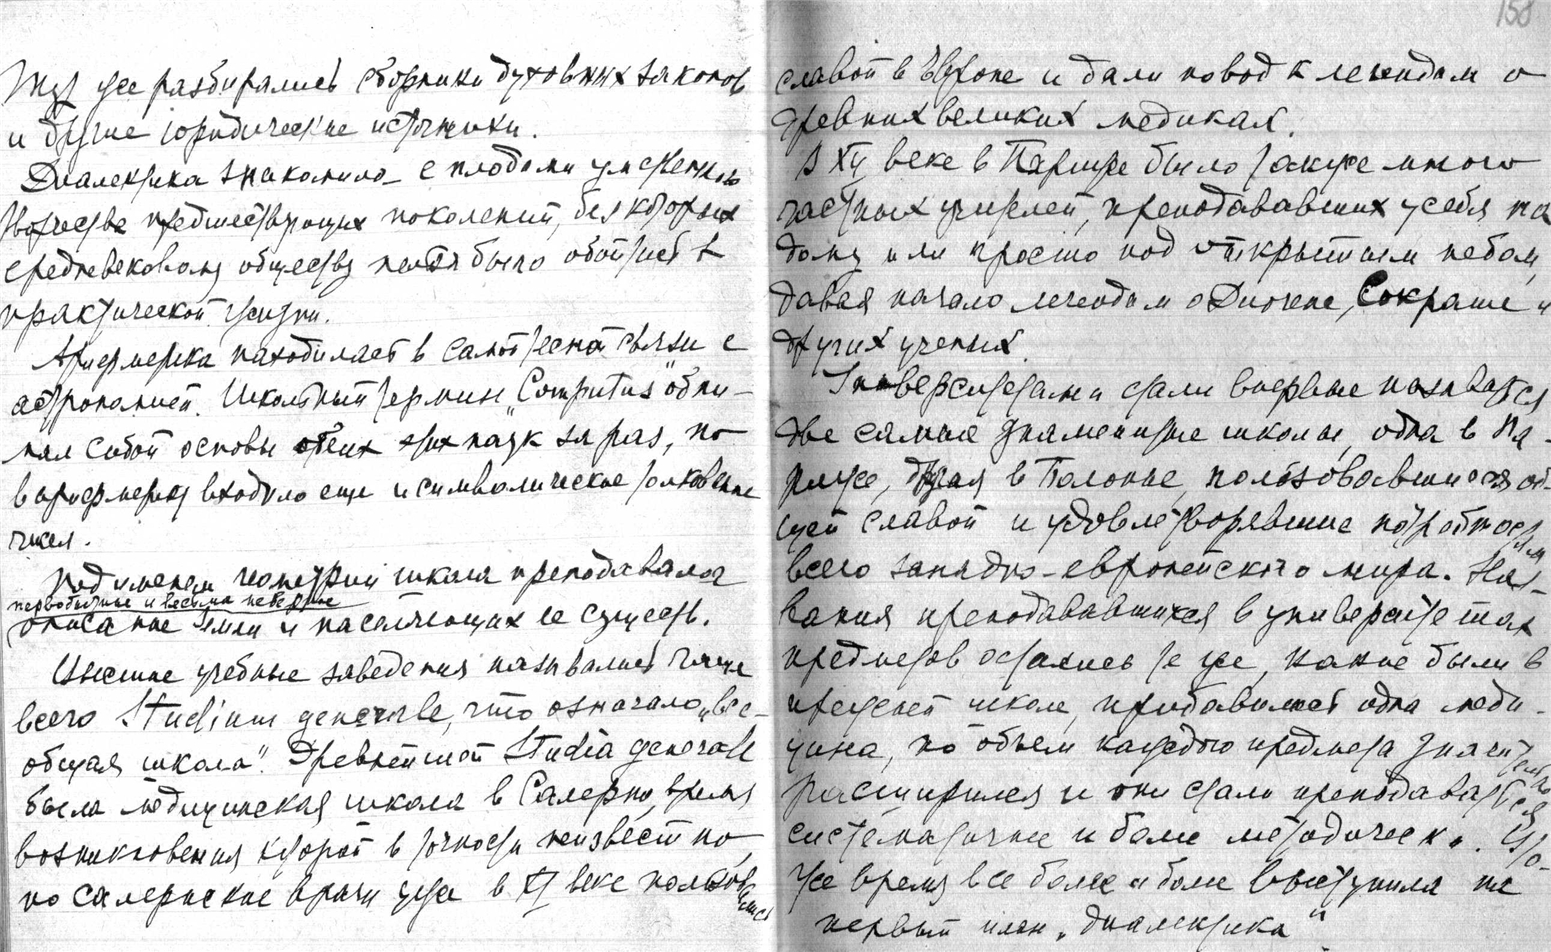 Тут же разбирались сборники духовных законов
и другие юридические источники.
Диалектика знакомила с плодами умственного
творчества предшествующих поколений, без которых
средневековому обществу нельзя было обойтись в
практической жизни.
Арифметика находилась в самой тесной связи с
астрономией. Школьный термин „Computus" обни-
мал собой основы обеих этих наук зараз, но
в арифметику входило еще и символическое толкование
чисел.
Под именем геометрии школа преподавала
первобытные и весьма неверные
описание земли и населяющих ее существ.
Высшие учебные заведения назывались чаще
всего Studium generale, что означало „все-
общая школа". Древнейшей Studia generale
была медицинская школа в Салерно, время
возникновения которой в точности неизвестно,
но салернские врачи уже в XI веке пользовались
158
славой в Европе и дали повод к легендам о
древних великих медиках.
В XII веке в Париже было также много
частных учителей, преподававших у себя на
дому или просто под открытым небом,
давая начало легендам о Диогене, Сократе и
других ученых.
Университетами стали впервые называться
две самые знаменитые школы, одна в Па-
риже, другая в Болонье, пользовавшиеся об-
щей славой и удовлетворявшие потребностям
всего западно-европейского мира. Наз-
вания преподававшихся в университетах
предметов остались те же, какие были в
прежней школе, прибавилась одна меди-
цина, но объем каждого предмета значительно
расширился и они стали преподаваться
систематичнее и более методически. В то-
же время все более и более выступила на
первый план „диалектика"